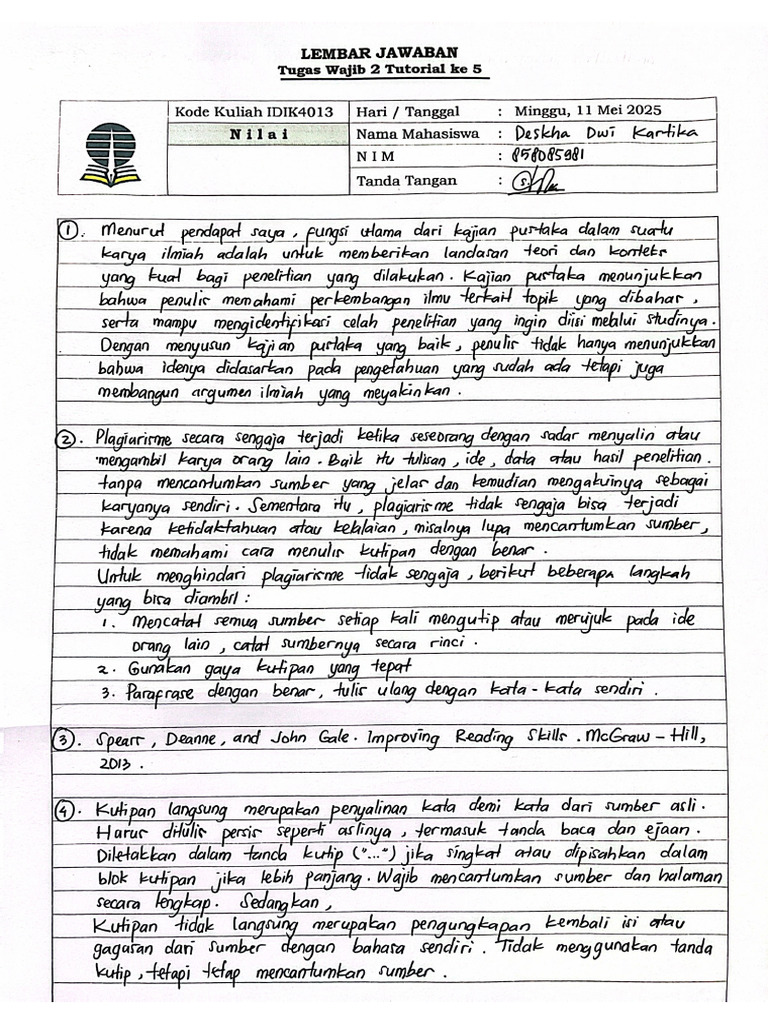 LEMBAR JAWABAN
Tugas Wajib 2 Tutorial ke 5
Kode Kuliah IDIK4013
Nilai
Hari / Tanggal : Minggu, 11 Mei 2025
Nama Mahasiswa : Deskha Dwi Kartika
N I M : 858085981
Tanda Tangan :
1. Menurut pendapat saya, fungsi utama dari kajian pustaka dalam suatu
karya ilmiah adalah untuk memberikan landasan teori dan konteks
yang kuat bagi penelitian yang dilakukan. Kajian pustaka menunjukkan
bahwa penulis memahami perkembangan ilmu terkait topik yang dibahas,
serta mampu mengidentifikasi celah penelitian yang ingin diisi melalui studinya.
Dengan menyusun kajian pustaka yang baik, penulis tidak hanya menunjukkan
bahwa idenya didasarkan pada pengetahuan yang sudah ada tetapi juga
membangun argumen ilmiah yang meyakinkan.
2. Plagiarisme secara sengaja terjadi ketika seseorang dengan sadar menyalin atau
mengambil karya orang lain. Baik itu tulisan, ide, data atau hasil penelitian.
tanpa mencantumkan sumber yang jelas dan kemudian mengakuinya sebagai
karyanya sendiri. Sementara itu, plagiarisme tidak sengaja bisa terjadi
karena ketidaktahuan atau kelalaian, misalnya lupa mencantumkan sumber,
tidak memahami cara menulis kutipan dengan benar.
Untuk menghindari plagiarisme tidak sengaja, berikut beberapa langkah
yang bisa diambil:
1. Mencatat semua sumber setiap kali mengutip atau merujuk pada ide
orang lain, catat sumbernya secara rinci.
2. Gunakan gaya kutipan yang tepat
3. Parafrase dengan benar, tulis ulang dengan kata-kata sendiri.
3. Spears, Deanne, and John Gale. Improving Reading Skills. McGraw-Hill,
2013.
4. Kutipan langsung merupakan penyalinan kata demi kata dari sumber asli.
Harus ditulis persis seperti aslinya, termasuk tanda baca dan ejaan.
Diletakkan dalam tanda kutip ("...") jika singkat atau dipisahkan dalam
blok kutipan jika lebih panjang. Wajib mencantumkan sumber dan halaman
secara lengkap. Sedangkan,
Kutipan tidak langsung merupakan pengungkapan kembali isi atau
gagasan dari sumber dengan bahasa sendiri. Tidak menggunakan tanda
kutip, tetapi tetap mencantumkan sumber.